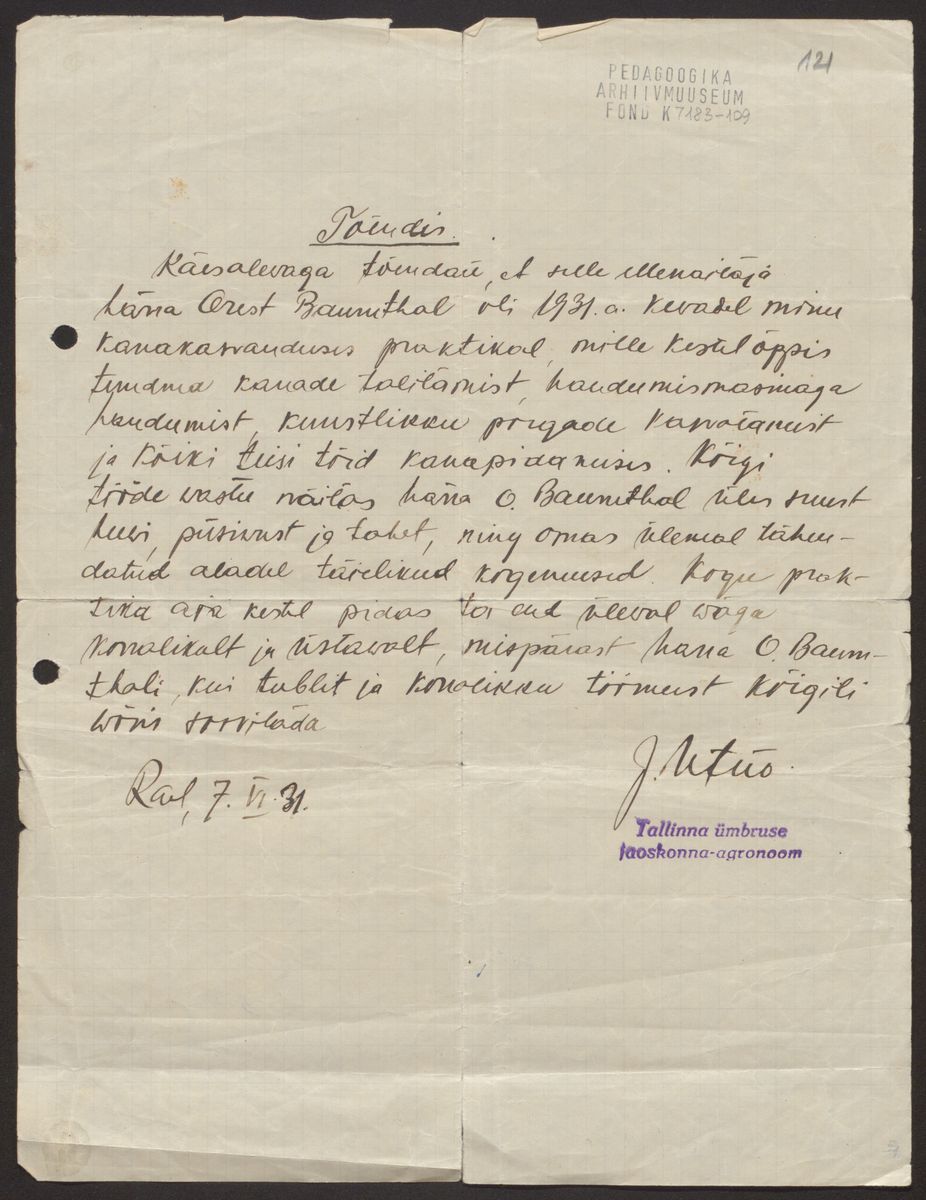 121
PEDAGOOGIKA
ARHIIVMUUSEUM
FOND K 7183-109
Tõendis.
Käesolevaga tõendan, et selle ettenäitaja
härra Orest Baumthal oli 1931. a. kevadel minu
kanakasvanduses praktikal, mille kestel õppis
tundma kanade talitamist, haudumismasinaga
haudumist, kunstlikku poegade kasvatamist
ja kõiki teisi töid kanapidamises. Kõigi
tööde wastu näitas härra O. Baumthal üles suurt
huwi, püsiwust ja tahet, ning omas ülemal tähen-
datud aladel täielikud kogemused. Kogu prak-
tika aja kestel pidas ta end ülewal wäga
korralikult ja üstawalt, mispärast härra O. Baum-
thali, kui tublit ja korralikku töömeest kõigili
wõin soowitada
Rael, 7. VI. 31.
Tallinna ümbruse
jaoskonna-agronoom